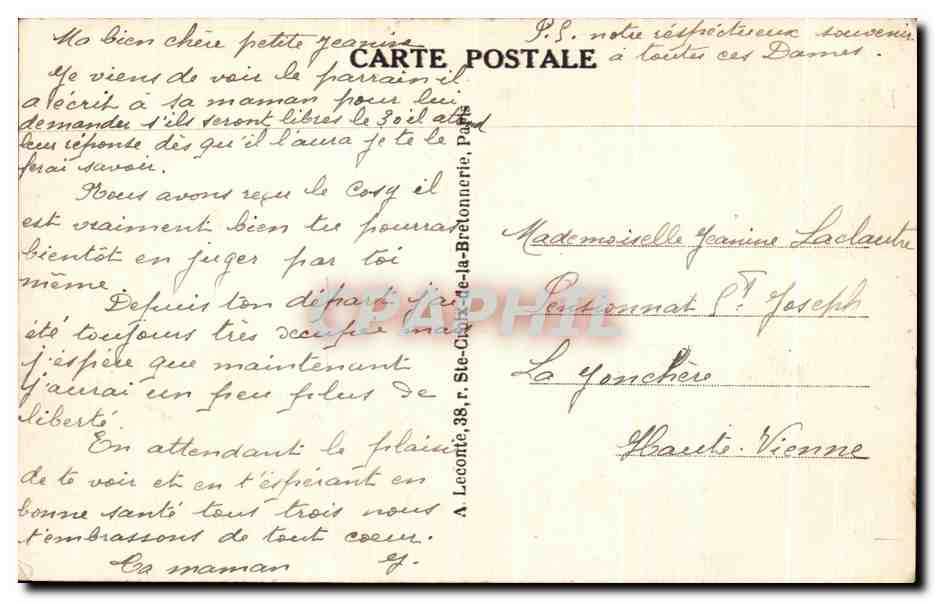 Ma bien chère petite Jeanine
Je viens de voir le parrain il
a écrit à sa maman pour lui
demander s'ils seront libres le 30 il attend
leur réponse dès qu'il l'aura je te le
ferai savoir.
Nous avons reçu le cosy il
est vraiment bien tu pourras
bientôt en juger par toi
même
Depuis ton départ j'ai
été toujours très occupée mais
j'espère que maintenant
j'aurai un peu plus de
liberté.
En attendant le plaisir
de te voir et en t'espérant en
bonne santé tous trois nous
t'embrassons de tout coeur.
Ta maman Y.
CARTE POSTALE
P.S. notre respectueux souvenir
à toutes ces Dames.
A. Leconte, 38, r. Ste-Croix-de-la-Bretonnerie, Paris
Mademoiselle Jeanine Laclautre
Pensionnat St Joseph
La Jonchère
Haute-Vienne
CPAPHIL